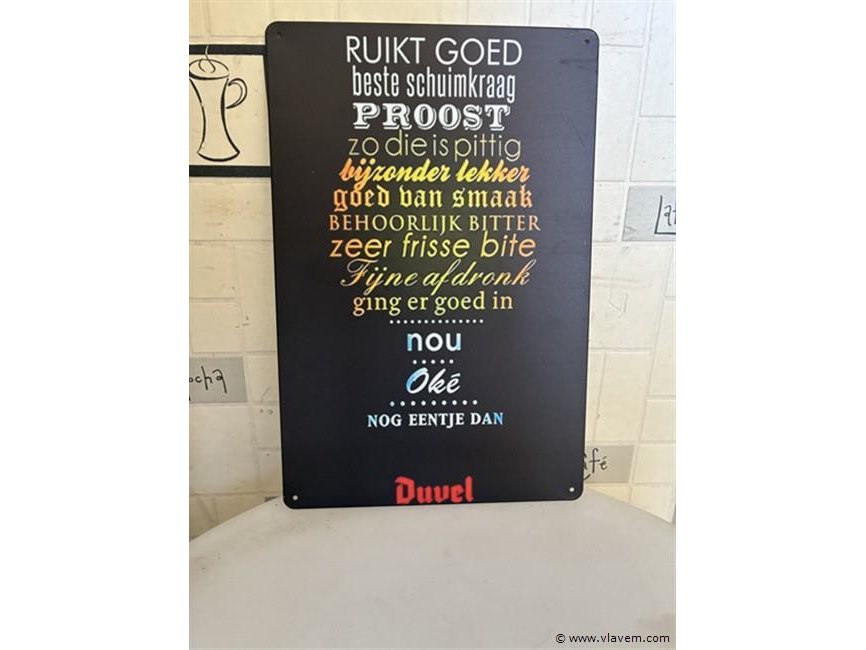 RUIKT GOED
beste schuimkraag
PROOST
zo die is pittig
bijzonder lekker
goed van smaak
BEHOORLIJK BITTER
zeer frisse bite
Fijne afdronk
ging er goed in
nou
Oké
NOG EENTJE DAN
Duvel
© www.vlavem.com